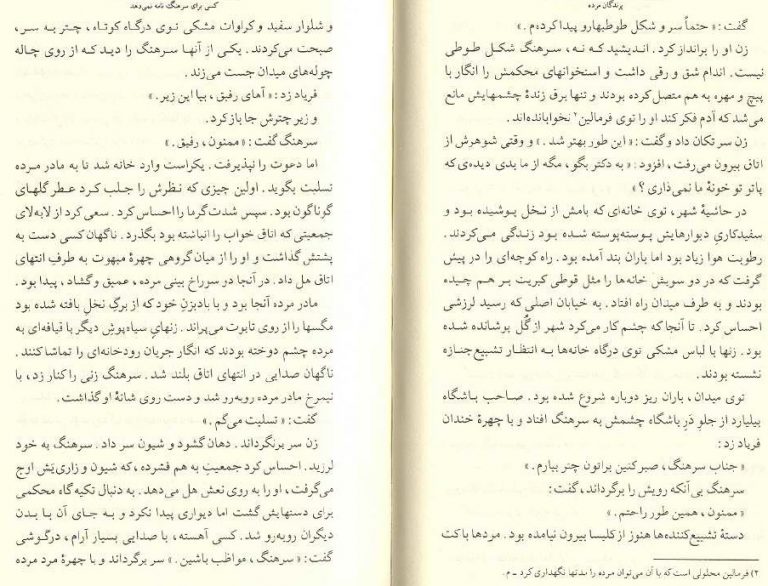 پرندگان مرده
گفت: «حتماً سر و شکل طوطیهارو پیدا کرده‌م.»
زن او را برانداز کرد. اندیشید که نه، سرهنگ شکل طوطی
نیست. اندام شق و رقی داشت و استخوانهای محکمش را انگار با
پیچ و مهره به هم متصل کرده بودند و تنها برق زندهٔ چشمهایش مانع
می‌شد که آدم فکر کند او را توی فرمالین۲ نخوابانده‌اند.
زن سر تکان داد و گفت: «این طور بهتر شد.» و وقتی شوهرش از
اتاق بیرون می‌رفت، افزود: «به دکتر بگو، مگه از ما بدی دیده‌ی که
پاتو تو خونهٔ ما نمی‌ذاری؟»
در حاشیهٔ شهر، توی خانه‌ای که بامش از نخل پوشیده بود و
سفیدکاریِ دیوارهایش پوسته‌پوسته شده بود زندگی می‌کردند.
رطوبت هوا زیاد بود اما باران بند آمده بود. راه کوچه‌ای را در پیش
گرفت که در دو سویش خانه‌ها را مثل قوطی کبریت بر هم چیده
بودند و به طرف میدان راه افتاد. به خیابان اصلی که رسید لرزشی
احساس کرد. تا آنجا که چشم کار می‌کرد شهر از گُل پوشانده شده
بود. زنها با لباس مشکی توی درگاه خانه‌ها به انتظار تشییع جنازه
نشسته بودند.
توی میدان، باران ریز دوباره شروع شده بود. صاحب باشگاه
بیلیارد از جلوِ دَرِ باشگاه چشمش به سرهنگ افتاد و با چهرهٔ خندان
فریاد زد:
«جناب سرهنگ، صبر کنین براتون چتر بیارم.»
سرهنگ بی آنکه رویش را برگرداند، گفت:
«ممنون، همین طور راحتم.»
دستهٔ تشییع‌کننده‌ها هنوز از کلیسا بیرون نیامده بود. مردها با کت
۲) فرمالین محلولی است که با آن می‌توان مرده را مدتها نگهداری کرد ـ م.
کسی برای سرهنگ نامه نمی‌دهد
و شلوار سفید و کراوات مشکی توی درگاه کوتاه، چتر به سر،
صبحت می‌کردند. یکی از آنها سرهنگ را دید که از روی چاله
چوله‌های میدان جست می‌زند.
فریاد زد: «آهای رفیق، بیا این زیر.»
و زیر چترش جا باز کرد.
سرهنگ گفت: «ممنون، رفیق.»
اما دعوت را نپذیرفت. یکراست وارد خانه شد تا به مادر مرده
تسلیت بگوید. اولین چیزی که نظرش را جلب کرد عطر گلهای
گوناگون بود. سپس شدت گرما را احساس کرد. سعی کرد از لابه‌لای
جمعیتی که اتاق خواب را انباشته بود بگذرد. ناگهان کسی دست به
پشتش گذاشت و او را از میان گروهی چهرهٔ مبهوت به طرف انتهای
اتاق هل داد. در آنجا در سوراخ بینی مرده، عمیق و گشاد، پیدا بود.
مادر مرده آنجا بود و با بادبزنِ خود که از برگ نخل بافته شده بود
مگسها را از روی تابوت می‌پراند. زنهای سیاه‌پوش دیگر با قیافه‌ای به
مرده چشم دوخته بودند که انگار جریان رودخانه‌ای را تماشا کنند.
ناگهان صدایی در انتهای اتاق بلند شد. سرهنگ زنی را کنار زد، با
نیمرخ مادر مرده روبه‌رو شد و دست روی شانهٔ او گذاشت.
گفت: «تسلیت می‌گم.»
زن سر برنگرداند. دهان گشود و شیون سر داد. سرهنگ به خود
لرزید. احساس کرد جمعیتِ به هم فشرده، که شیون و زاری‌یَش اوج
می‌گرفت، او را به روی نعش هل می‌دهد. به دنبال تکیه‌گاه محکمی
برای دستهایش گشت اما دیواری پیدا نکرد و به جای آن با بدن
دیگران روبه‌رو شد. کسی آهسته، با صدایی بسیار آرام، درگوشی
گفت: «سرهنگ، مواظب باشین.» سر برگرداند و با چهرهٔ مرد مرده